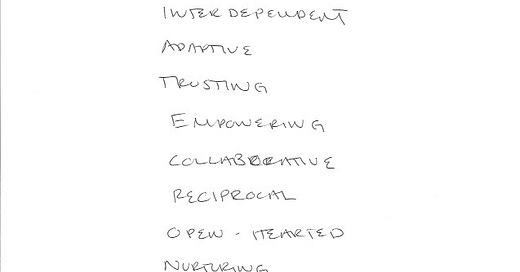 INTERDEPENDENT
ADAPTIVE
TRUSTING
EMPOWERING
COLLABORATIVE
RECIPROCAL
OPEN-HEARTED
NURTURING